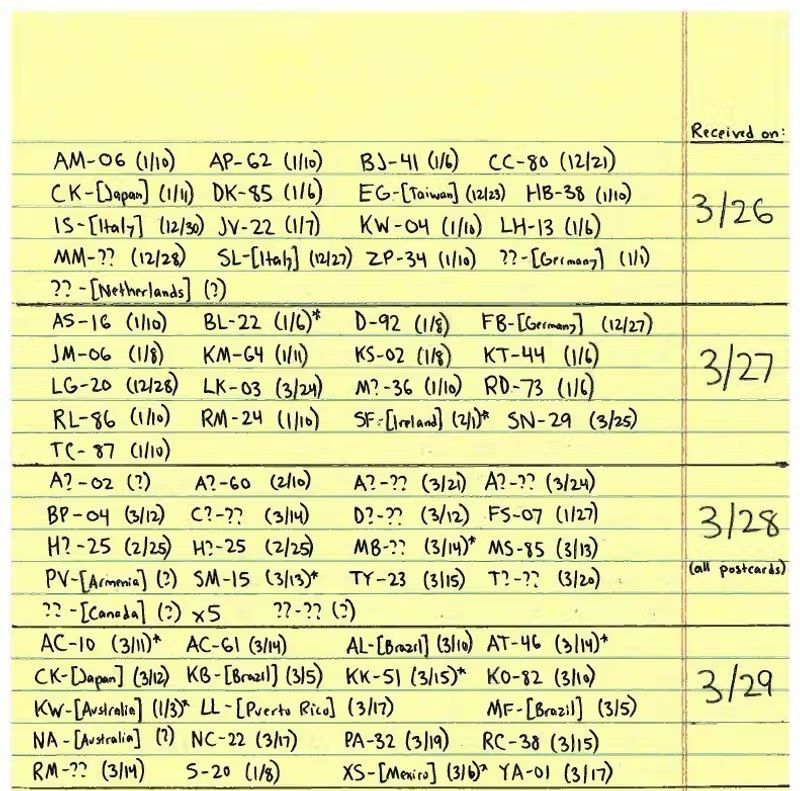 Received on:
AM-06 (1/10) AP-62 (1/10) BJ-41 (1/6) CC-80 (12/21)
CK-[Japan] (1/11) DK-85 (1/6) EG-[Taiwan] (12/23) HB-38 (1/10)
3/26
IS-[Italy] (12/30) JV-22 (1/7) KW-04 (1/10) LH-13 (1/6)
MM-?? (12/28) SL-[Italy] (12/27) ZP-34 (1/10) ??-[Germany] (1/1)
??-[Netherlands] (?)
AS-16 (1/10) BL-22 (1/6)* D-92 (1/8) FB-[Germany] (12/27)
JM-06 (1/8) KM-64 (1/11) KS-02 (1/8) KT-44 (1/6)
3/27
LG-20 (12/28) LK-03 (3/24) M?-36 (1/10) RD-73 (1/6)
RL-86 (1/10) RM-24 (1/10) SF-[Ireland] (2/1)* SN-29 (3/25)
TC-87 (1/10)
A?-02 (?) A?-60 (2/10) A?-?? (3/21) A?-?? (3/24)
BP-04 (3/12) C?-?? (3/14) D?-?? (3/12) FS-07 (1/27)
3/28
H?-25 (2/25) H?-25 (2/25) MB-?? (3/14)* MS-85 (3/13)
(all postcards)
PV-[Armenia] (?) SM-15 (3/13)* TY-23 (3/15) T?-?? (3/20)
??-[Canada] (?) x5 ??-?? (?)
AC-10 (3/11)* AC-61 (3/14) AL-[Brazil] (3/10) AT-46 (3/14)*
CK-[Japan] (3/12) KB-[Brazil] (3/5) KK-51 (3/15)* KO-82 (3/10)
3/29
KW-[Australia] (1/3)* LL-[Puerto Rico] (3/17) MF-[Brazil] (3/5)
NA-[Australia] (?) NC-22 (3/17) PA-32 (3/19) RC-38 (3/15)
RM-?? (3/14) S-20 (1/8) XS-[Mexico] (3/6)* YA-01 (3/17)